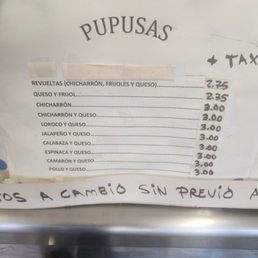 PUPUSAS
+ TAX
REVUELTAS (CHICHARRÓN, FRIJOLES Y QUESO) 2.75
QUESO Y FRIJOL 2.75
CHICHARRÓN 3.00
CHICHARRÓN Y QUESO 3.00
LOROCO Y QUESO 3.00
JALAPEÑO Y QUESO 3.00
CALABAZA Y QUESO 3.00
ESPINACA Y QUESO 3.00
CAMARÓN Y QUESO 3.00
POLLO Y QUESO 3.00
OS A CAMBIO SIN PREVIO A